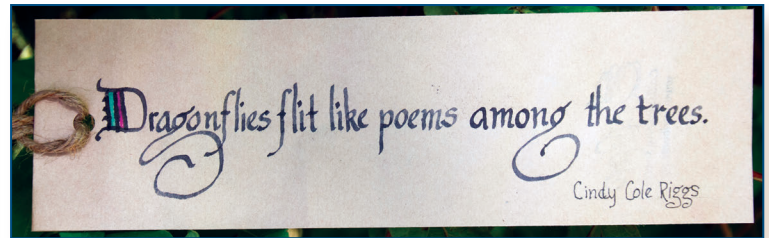 Dragonflies flit like poems among the trees.
Cindy Cole Riggs